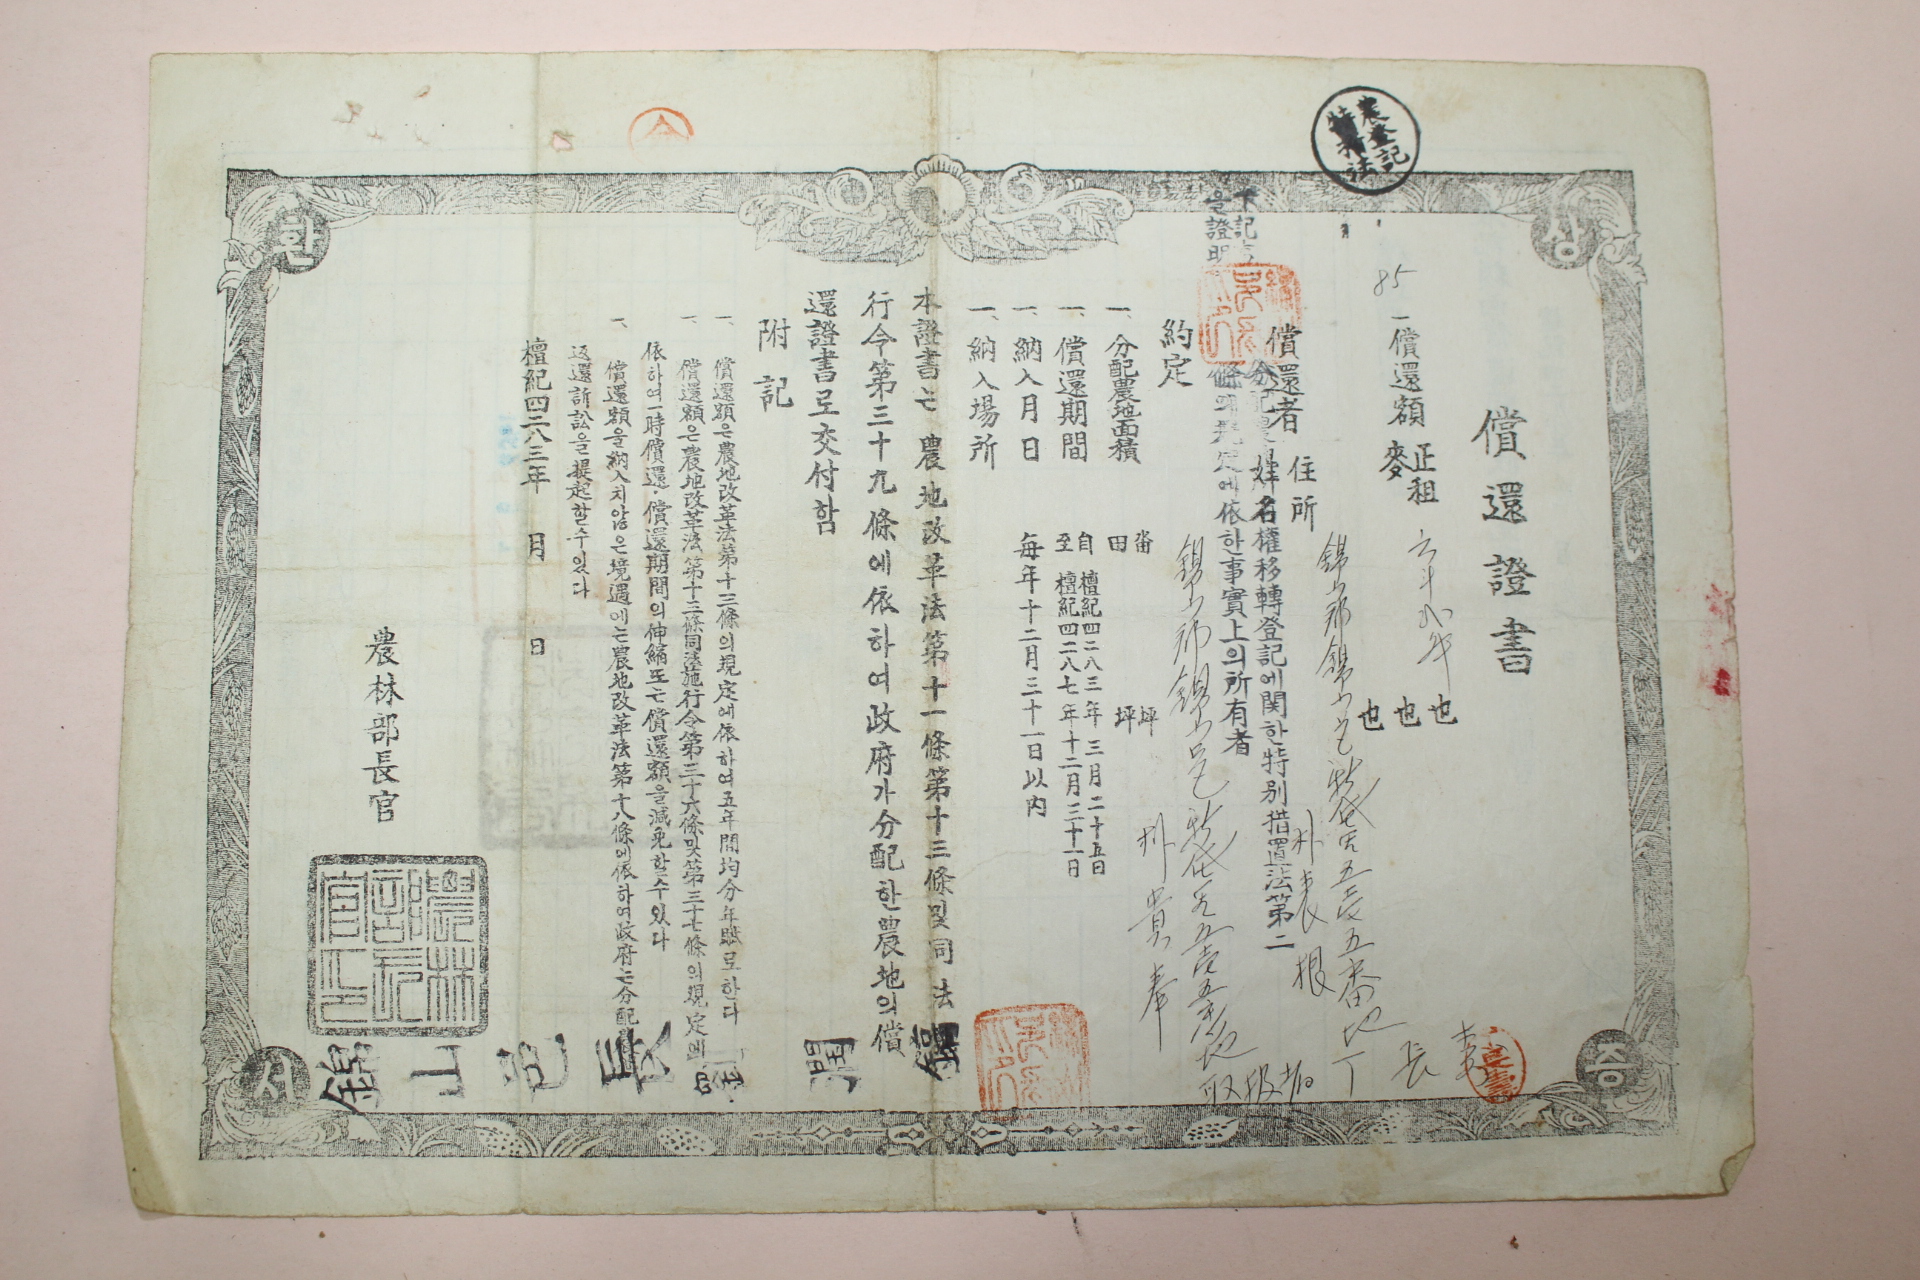 상
환
증
서
農登記
特措法
償還證書
85
一償還額 正租
麥
也
也
也
償還者 住所
姓名
朴
根
下記
을證明
權移轉登記에関한特別措置法第二
條의規定에依한事實上의所有者
約定
一、分配農地面積 畓 坪
田 坪
一、償還期間 自 檀紀四二八三年 三月二十五日
至 檀紀四二八七年十二月三十一日
一、納入月日 每年十二月三十一日以內
一、納入場所
朴貴奉
本證書는 農地改革法第十一條第十三條및同法施
行令第三十九條에依하여政府가分配한農地의償
還證書로交付함
附記
一、償還額은農地改革法第十三條의規定에依하여五年間均分年賦로한다
一、償還額은農地改革法第十三條同法施行令第三十六條및第三十七條의規定에
依하여一時償還・償還期間의伸縮또는償還額을減免할수있다
一、償還額을納入치않은境遇에는農地改革法第十八條에依하여政府는分配
返還訴訟을提起할수있다
檀紀四二八三年 月 日
農林部長官
農林部長官之印
錦山邑長